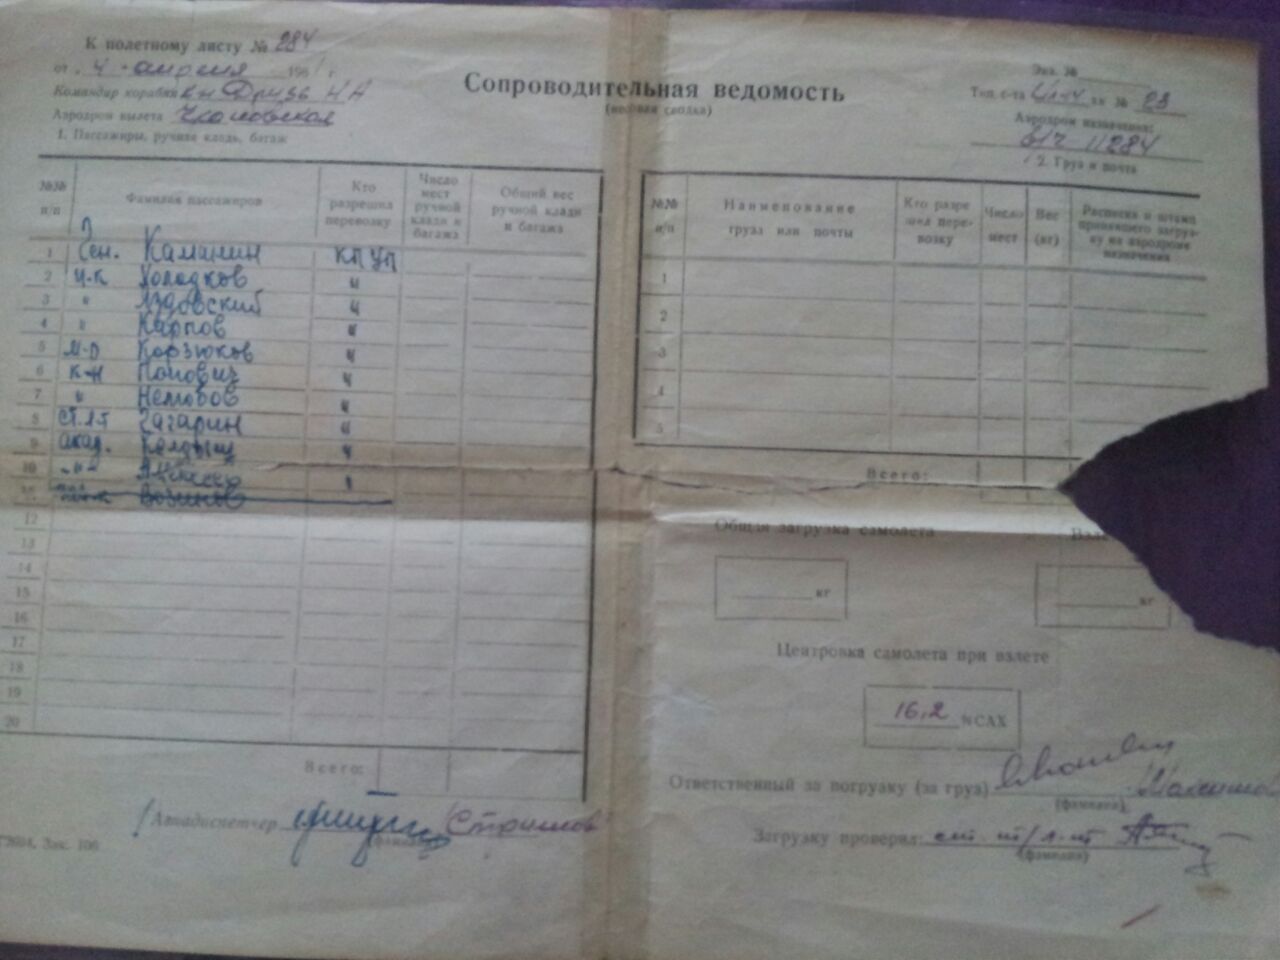 К полетному листу № 284
от „4 апреля 1961 г.
Командир корабля к-н Друзь НА
Аэродром вылета Чкаловская
1. Пассажиры, ручная кладь, багаж
Сопроводительная ведомость
Экз. №
Тип с-та Ил-14 № 08
Аэродром назначения:
в/ч 11284
2. Груз и почта
№№ п/п
Фамилия пассажиров
Кто разрешил перевозку
Число мест ручной клади и багажа
Общий вес ручной клади и багажа
1 Ген. Каманин КП УП
2 п-к Холодков "
3 " Яздовский "
4 " Карпов "
5 м-р Корзюков "
6 к-н Попович "
7 " Нелюбов "
8 ст.л-т Гагарин "
9 акад. Келдыш "
10 -"- "
11
12
13
14
15
16
17
18
19
20
Всего:
Авиадиспетчер
(фамилия)
Зак. 106
№№ п/п
Наименование груза или почты
Кто разрешил перевозку
Число мест
Вес (кг)
Расписка и штамп принявшего загрузку на аэродроме назначения
1
2
3
4
5
Всего:
Общая загрузка самолета
кг
кг
Центровка самолета при взлете
16,2 %САХ
Ответственный за погрузку (за груз)
(фамилия)
Загрузку проверил:
(фамилия)